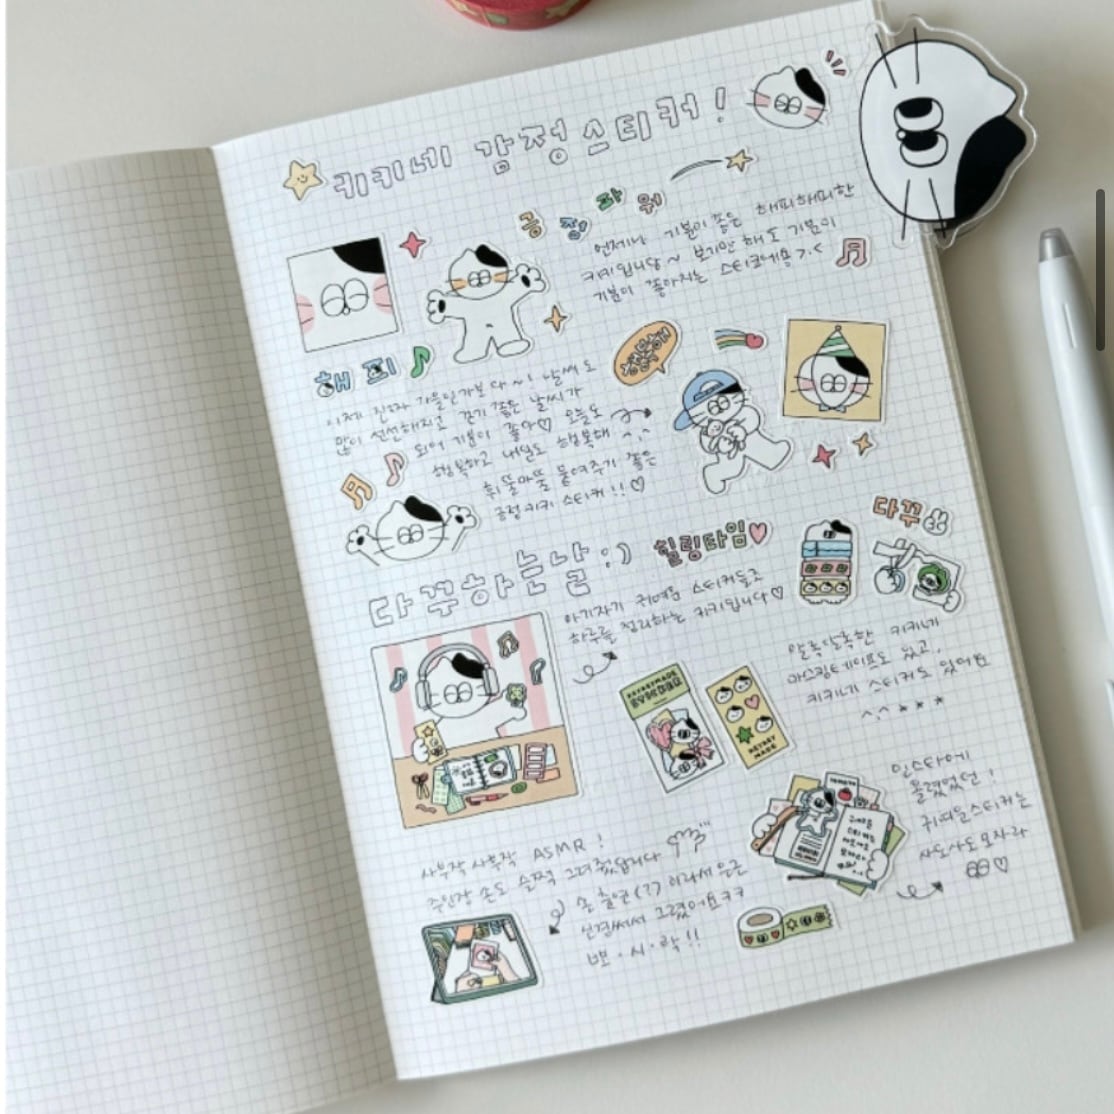 키키네 감정 스티커!
긍정파워
언제나 기분이 좋은 해피해피한
키키입니당~ 보기만 해도 기분이
기분이 좋아지는 스티커예용 >.<
해피
행복해
이제 진짜 가을인가보다~! 날씨도
많이 선선해지고 걷기 좋은 날씨가
되어 기분이 좋아♡ 오늘도
행복하고 내일도 행복해 ^.^
휘뚤마뚤 붙여주기 좋은
긍정키키 스티커!!♡
다꾸하는날 :)
힐링타임
다꾸
아기자기 귀여운 스티커들로
하루를 정리하는 키키입니다♡
알록달록한 키키네
마스킹테이프도 있고,
키키네 스티커도 있어요
^.^ ★ ★ ★
KEYKEYMADE
KEYKEY
MADE
인스타에
올렸었던!
귀여운스티커는
사도사도모자라
♡
사부작 사부작 ASMR!
주인장 손도 슬쩍 그려줬답니다
손 출연(??) 이라서 유튼
신경써서 그렸어요ㅋㅋ
뽀·시·락!!